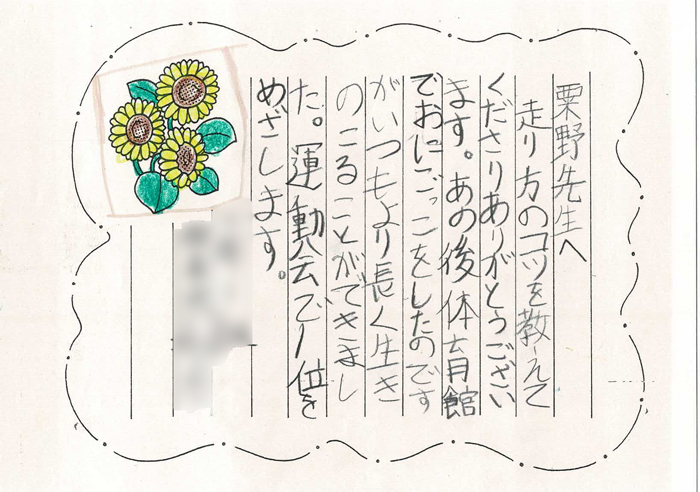 粟野先生へ
走り方のコツを教えて
くださりありがとうござい
ます。あの後体育館
でおにごっこをしたのです
がいつもより長く生き
のこることができまし
た。運動会で1位を
めざします。